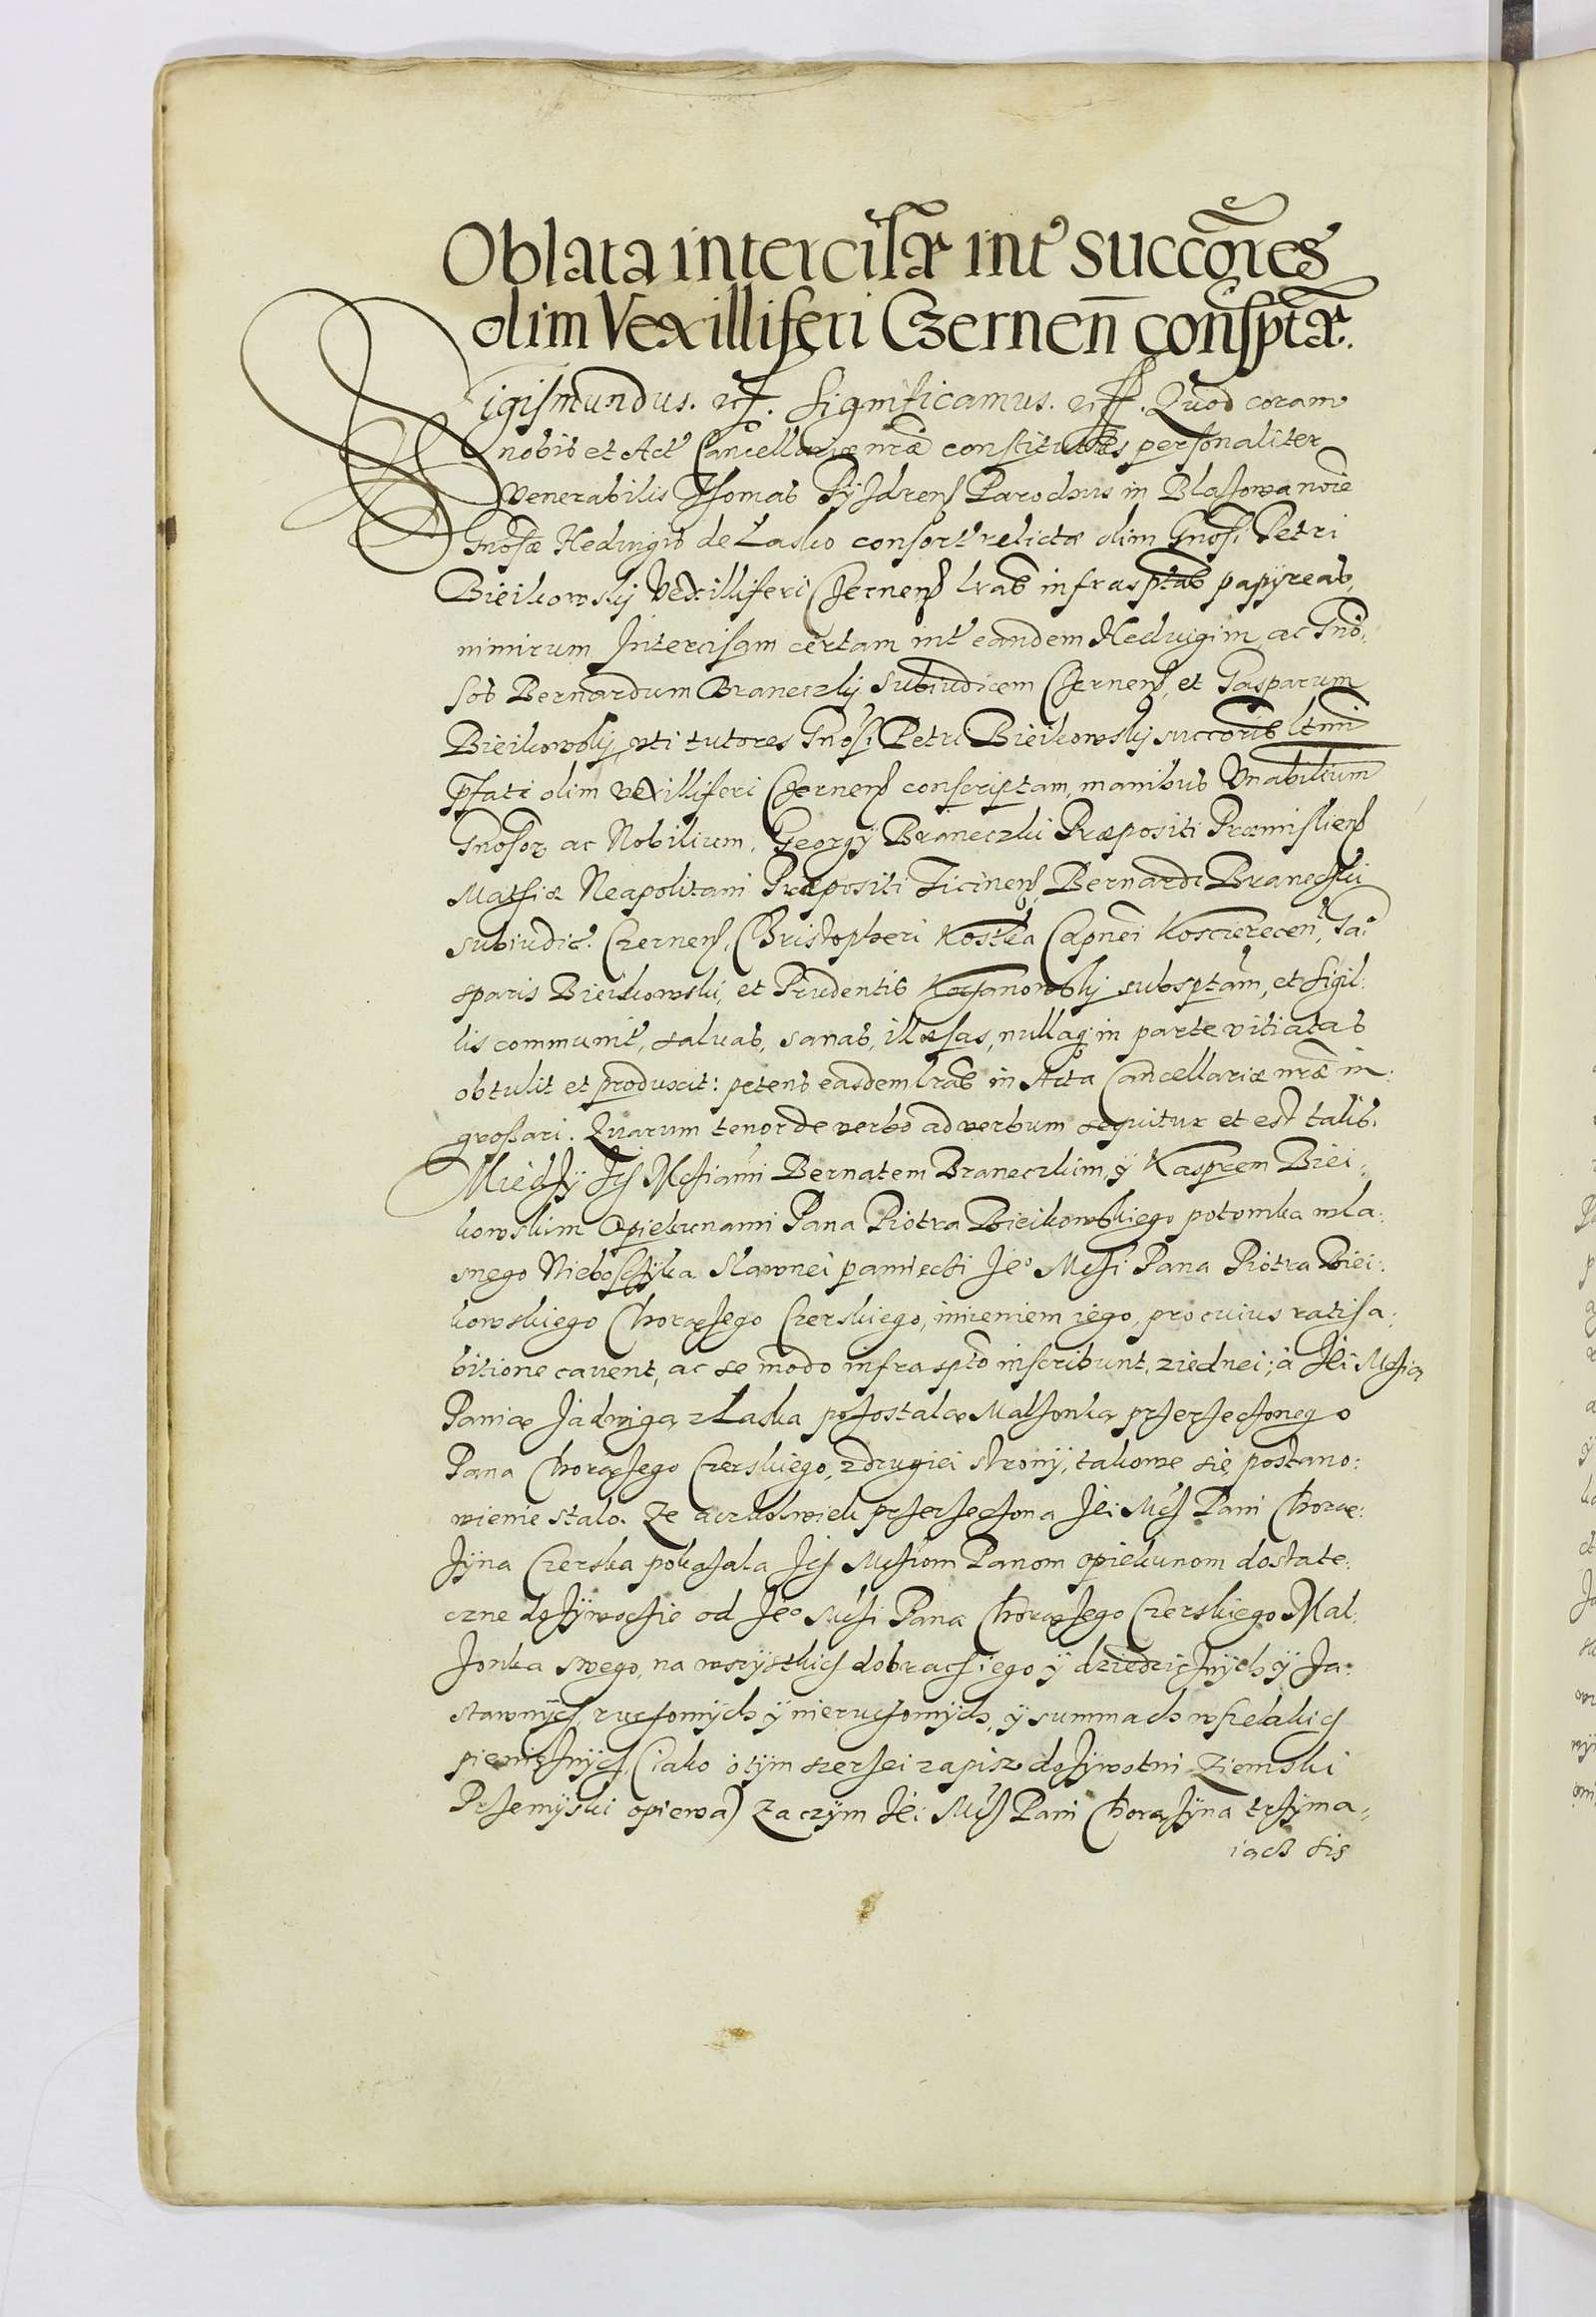 Oblata intercisæ int' succõres
olim Vexilliferi Czernen̄ consptæ.
Sigismundus. etc. Significamus. etc. Quod coram
nobis et Act' Cancellariæ nr̃æ constitutus personaliter
Venerabilis Thomas Parochus in Blazowa noĩe
Gnosæ Hedvigis de Lasko consort' relictæ olim Gnosi Petri
Bieikowsky Vexilliferi Czernens̄ lr̃as infrasptas papyreas,
nimirum Intercisam certam int' eandem Hedvigim, ac Gno-
sos Bernardum Braneczky Subiudicem Czernens̄, et Gasparum
Bieikowsky, uti tutores Gnosi Petri Bieikowsky succoris ltmi
p̃fati olim vexilliferi Czernens̄ conscriptam, manibus Vnabilium
Gnosor̃ ac Nobilium, Georgÿ Braneczki Præpositi Præmisliens̄
Mathiæ Neapolitani Præpositi Ticinens̄, Bernardi Braneczki
subiudic'. Czernens̄, Christopheri Kostka Capnei Koscierzecen̄, Ga-
sparis Bieikowski, et Prudentis subsptam, et sigil-
lis communit', salvas, sanas, illæsas, nullaq; in parte vitiatas
obtulit et produxit: petens easdem lr̃as in Acta Cancellariæ nr̃æ in-
grossari. Quarum tenor de verbo ad verbum sequitur et est talis.
Miedzÿ Ich Mciami Bernatem Braneczkim, ÿ Kasprem Biei-
kowskim Opiekunami Pana Piotra Bieikowskiego potomka wla-
snego Nieboszczyka Slawnei pamięci Jeo Mści Pana Piotra Biei-
kowskiego Chorążego Czerskiego, imieniem iego, pro cuius ratiha-
bitione cavent, ac se modo infraspto inscribunt, ziednei; à Jei Mścią
Panią Jadwigą z Laska pozostalą Malzonką przerzeczonego
Pana Chorążego Czerskiego, z drugiei strony, takowe się postano-
wienie stalo. Ze aczkolwiek przerzeczona Jei Mść Pani Chorą-
zÿna Czerska pokazala Ich Mściom Panom opiekunom dostate-
czne dozÿwocie od Jeo Mści Pana Chorążego Czerskiego Mal-
zonka swego, na wszÿstkich dobrach iego ÿ dziedzicznÿch ÿ za-
stawnÿch, ruchomÿch ÿ nieruchomÿch, ÿ summach wszelakich
pieniężnÿch, (iako o tÿm szerzei zapis dozÿwotni Ziemski
Przemÿski opiewa) Zaczÿm Jei Mść Pani Chorązÿna trzÿma-
iąc się